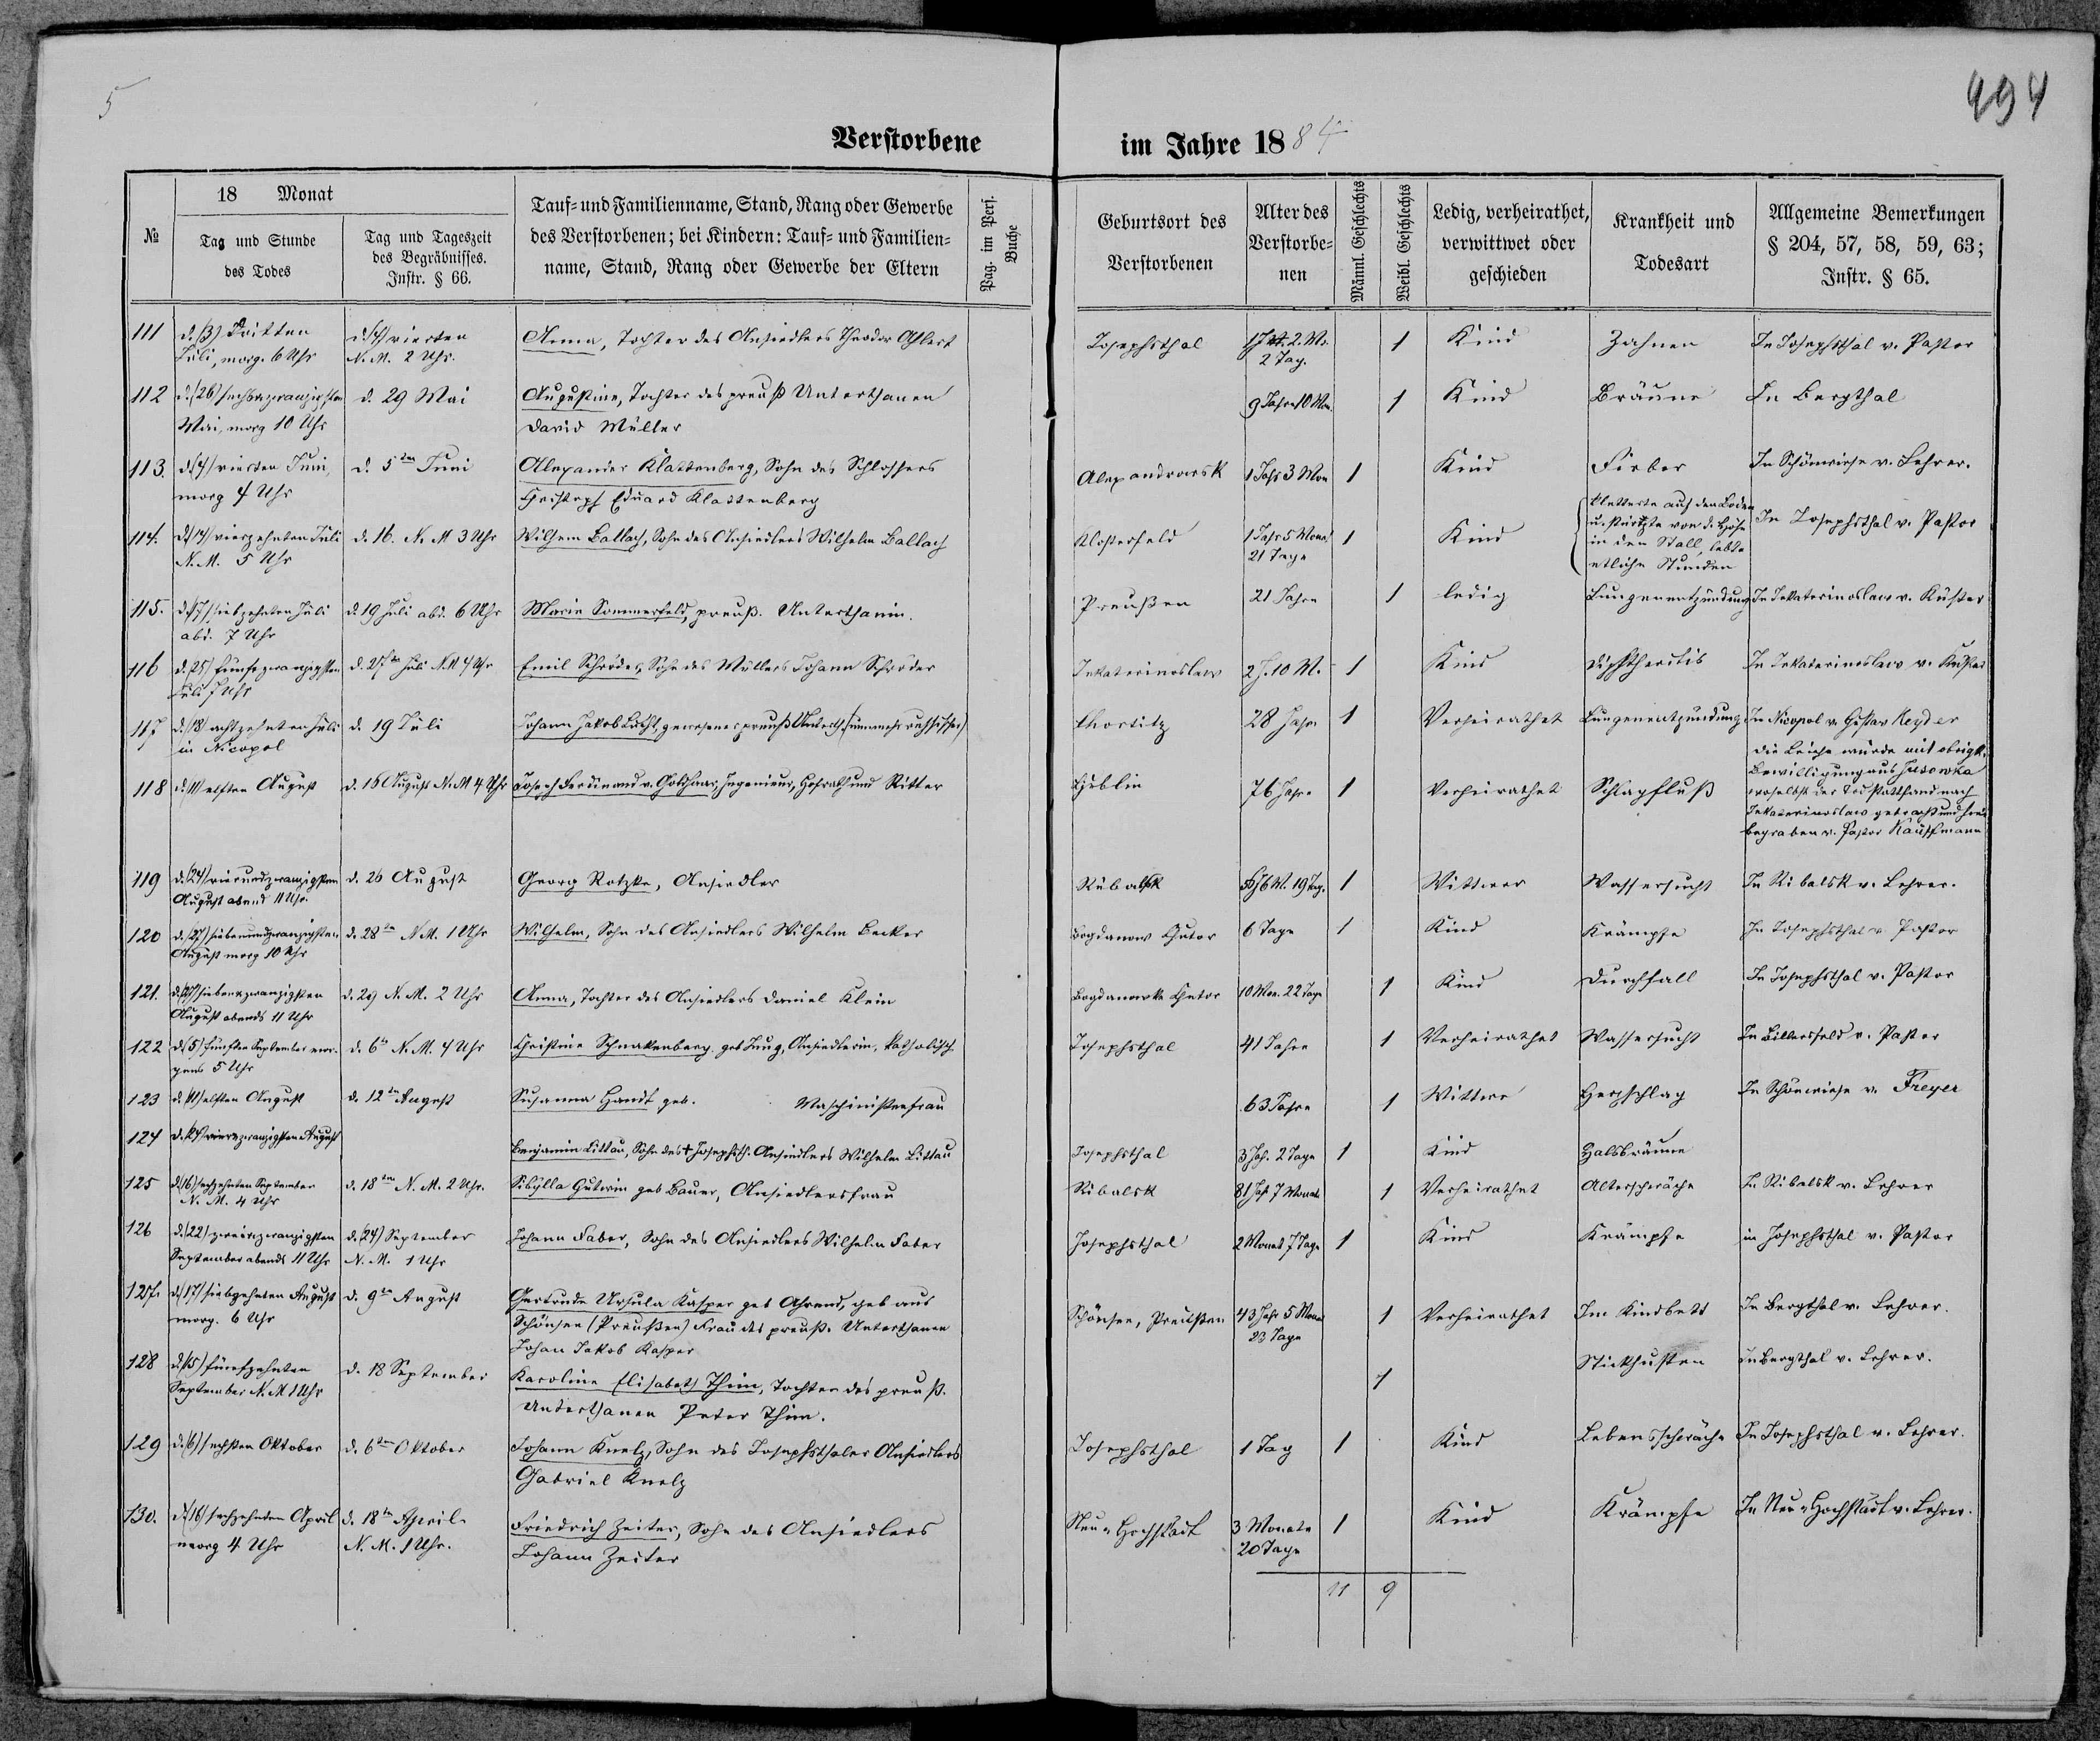 5
494
Verstorbene im Jahre 1884
№
18 Monat
Tag und Stunde
des Todes
Tag und Tageszeit
des Begräbnisses.
Instr. § 66.
Tauf- und Familienname, Stand, Rang oder Gewerbe
des Verstorbenen; bei Kindern: Tauf- und Familien-
name, Stand, Rang oder Gewerbe der Eltern
Pag. im Pers.
Buche
Geburtsort des
Verstorbenen
Alter des
Verstorbe-
nen
Männl. Geschlechts
Weibl. Geschlechts
Ledig, verheirathet,
verwittwet oder
geschieden
Krankheit und
Todesart
Allgemeine Bemerkungen
§ 204, 57, 58, 59, 63;
Instr. § 65.
111 d. (3) Dritten d. (4) vierten Anna, Tochter des Ansiedlers Theodor Josephsthal 1 J. 2 M. 1 Kind Zahnen In Josephsthal v. Pastor
Juli, morg. 6 Uhr N. M. 2 Uhr. 2 Tag.
112 d. (26) sechsezwanzigsten d. 29 Mai Augustine, Tochter des preuß Unterthanen 9 Jahre 10 Mon. 1 Kind Bräune In Bergthal
Mai, morg 10 Uhr David Müller
113. d. (4) vierten Juni, d. 5ten Juni Alexander Klattenberg, Sohn des Schlossers Alexandrowsk 1 Jahr 3 Mon 1 Kind Fieber In Schönwiese v. Lehrer.
morg 4 Uhr Christoph Eduard Klattenberg
114. d. (14) vierzehnten Juli d. 16. N. M 3 Uhr Wilhem Ballach, Sohn des Ansiedlers Wilhelm Ballach Klosterfeld 1 Jahr 5 Mona. 1 Kind kletterte auf den Boden In Josephsthal v. Pastor
N. M. 5 Uhr 21 Tage u. stürtzte von d. Höhe
in den Stall, lebte
etliche Stunden
115. d. (17) siebzehnten Juli d. 19 Juli abd. 6 Uhr Marie Sommerfeld, preuß. Unterthanin. Preußen 21 Jahre 1 ledig Lungenentzündung In Jekaterinoslaw v. Küster
abd. 7 Uhr
116 d. (25) fünfezwanzigsten d. 27ten Juli N.M 4 Uhr Emil Schröder, Sohn des Müllers Johann Schröder Jekaterinoslaw 2 J. 10 M. 1 Kind Diphtheritis In Jekaterinoslaw v. Küster
Juli 7 Uhr
117 d. (18) achtzehnten Juli d. 19 Juli Johann Jakob gewesener preuß Unterth. Chortitz 28 Jahre 1 Verheirathet Lungenentzündung In Nicopol v. Gustav Keyder
in Nicopol
118 d. (11) elften August d. 16 August N.M 4 Uhr Joseph Ferdinand v. Gotthaar, Ingenieur, Hofrath und Ritter Ljublin 76 Jahre 1 Verheirathet Schlagfluß die Leiche wurde mit obrigk.
Bewilligung aus Jusowka
woselbst der Tod stattfand nach
Jekaterinoslaw gebracht und hier
begraben v. Pastor Kauffmann
119 d. (24) vierundzwanzigsten d. 26 August Georg Rotzke, Ansiedler Ribalsk 6 M. 19 Tag. 1 Wittwer Wassersucht In Ribalsk v. Lehrer.
August abend 11 Uhr.
120 d. (27) siebenundzwanzigsten d. 28ten N.M. 1 Uhr Wilhelm, Sohn des Ansiedlers Wilhelm Becker Bogdanow Chutor 6 Tage 1 Kind Krämpfe In Josephsthal v. Pastor
August morg 10 Uhr
121. d. (27) siebenezwanzigsten d. 29 N. M. 2 Uhr Anna, Tochter des Ansiedlers Daniel Klein Bogdanowka Chutor 10 Mon. 22 Tage 1 Kind Durchfall In Josephsthal v. Pastor
August abends 11 Uhr
122 d. (5) fünften September mor- d. 6ten N. M. 4 Uhr Christine Schnakenberg geb Jung, Ansiedlerin, katholisch Josephsthal 41 Jahre 1 Verheirathet Wassersucht In Billersfeld v. Pastor
gens 5 Uhr
123 d. (11) elften August d. 12ten August Susanna Handt geb. Maschinistenfrau 63 Jahre 1 Wittwe Herzschlag In Schönwiese v. Freyer
124 d. (24) vierezwanzigsten August Benjamin Littau, Sohn des + Josephsth. Ansiedlers Wilhelm Littau Josephsthal 3 Jah. 2 Tage 1 Kind Halsbräune
125 d. (16) sechzehnten September d. 18ten N. M. 2 Uhr. Sibylla Gutwin geb Bauer, Ansiedlersfrau Ribalsk 81 Jah 7 Monat 1 Verheirathet Altersschwäche In Ribalsk v. Lehrer
N. M. 4 Uhr
126 d. (22) zweiezwanzigsten d. (24) September Johann Faber, Sohn des Ansiedlers Wilhelm Faber Josephsthal 2 Monat 7 Tage 1 Kind Krämpfe in Josephsthal v. Pastor
September abends 11 Uhr N. M. 1 Uhr
127. d. (17) siebzehnten August d. 9ten August Gertrude Ursula Kasper geb Ahrend, geb aus Schönsee, Preußen 43 Jahr 5 Monat 1 Verheirathet Im Kindbett In Bergthal v. Lehrer.
morg. 6 Uhr Schönsee (Preußen) Frau des preuß. Unterthanen 23 Tage
Johan Jakob Kasper
128 d. (15) fünfzehnten d. 18 September Karoline Elisabeth Thim, Tochter des preuß. 1 Stickhusten In Bergthal v. Lehrer.
September N. M 1 Uhr Unterthanen Peter Thim.
129 d. (6) sechsten Oktober d. 6ten Oktober Johann Knelz, Sohn des Josephsthaler Ansiedlers Josephsthal 1 Tag 1 Kind Lebensschwäche In Josephsthal v. Lehrer.
Gabriel Knelz
130. d. (16) sechzehnten April d. 18ten April Friedrich Zeiter, Sohn des Ansiedlers Neu-Hochstädt 3 Monate 1 Kind Krämpfe In Neu-Hochstädt v. Lehrer.
morg 4 Uhr N. M. 1 Uhr. Johann Zeiter 20 Tage
11 9